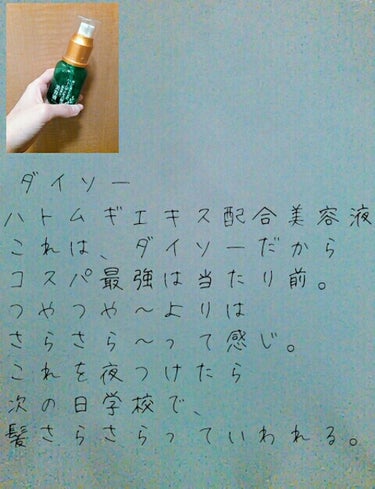 ダイソー
ハトムギエキス配合美容液
これは、ダイソーだから
コスパ最強は当たり前。
つやつや～よりは
さらさら～って感じ。
これを夜つけたら
次の日学校で、
髪さらさらっていわれる。